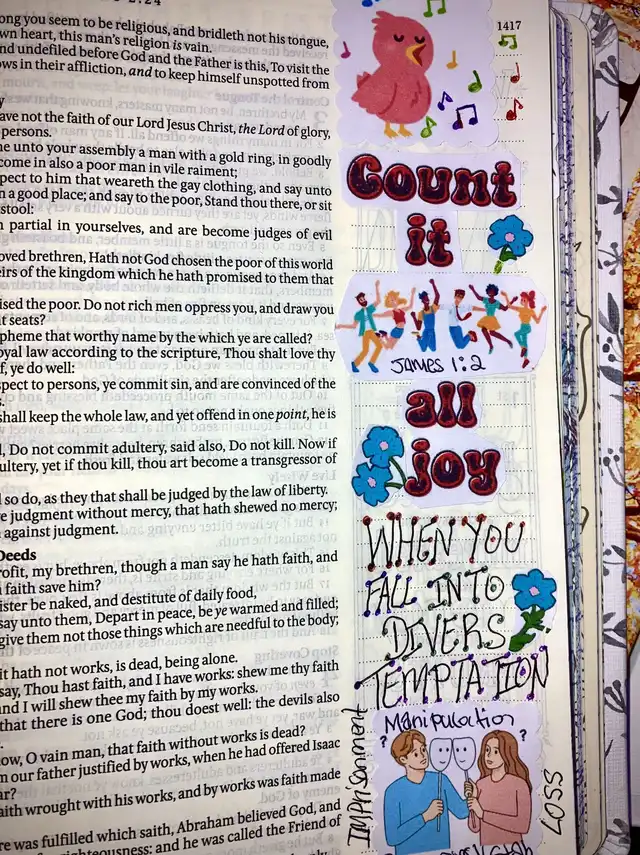 2:24
ong you seem to be religious, and bridleth not his tongue,
wn heart, this man's religion is vain.
nd undefiled before God and the Father is this, To visit the
ows in their affliction, and to keep himself unspotted from
y
ave not the faith of our Lord Jesus Christ, the Lord of glory,
persons.
ne unto your assembly a man with a gold ring, in goodly
come in also a poor man in vile raiment;
pect to him that weareth the gay clothing, and say unto
n a good place; and say to the poor, Stand thou there, or sit
stool:
n partial in yourselves, and are become judges of evil
oved brethren, Hath not God chosen the poor of this world
eirs of the kingdom which he hath promised to them that
ised the poor. Do not rich men oppress you, and draw you
t seats?
pheme that worthy name by the which ye are called?
oyal law according to the scripture, Thou shalt love thy
f, ye do well:
spect to persons, ye commit sin, and are convinced of the
s.
shall keep the whole law, and yet offend in one point, he is
l, Do not commit adultery, said also, Do not kill. Now if
ultery, yet if thou kill, thou art become a transgressor of
l so do, as they that shall be judged by the law of liberty.
e judgment without mercy, that hath shewed no mercy;
against judgment.
Deeds
rofit, my brethren, though a man say he hath faith, and
faith save him?
ister be naked, and destitute of daily food,
say unto them, Depart in peace, be ye warmed and filled;
give them not those things which are needful to the body;
it hath not works, is dead, being alone.
say, Thou hast faith, and I have works: shew me thy faith
and I will shew thee my faith by my works.
that there is one God; thou doest well: the devils also
ow, O vain man, that faith without works is dead?
m our father justified by works, when he had offered Isaac
ar?
aith wrought with his works, and by works was faith made
re was fulfilled which saith, Abraham believed God, and
righteousness: and he was called the Friend of
1417
Count
it
James 1:2
all
joy
WHEN YOU
FALL INTO
DIVERS
TEMPTATION
Manipulation
? ?
Imprisonment
LOSS